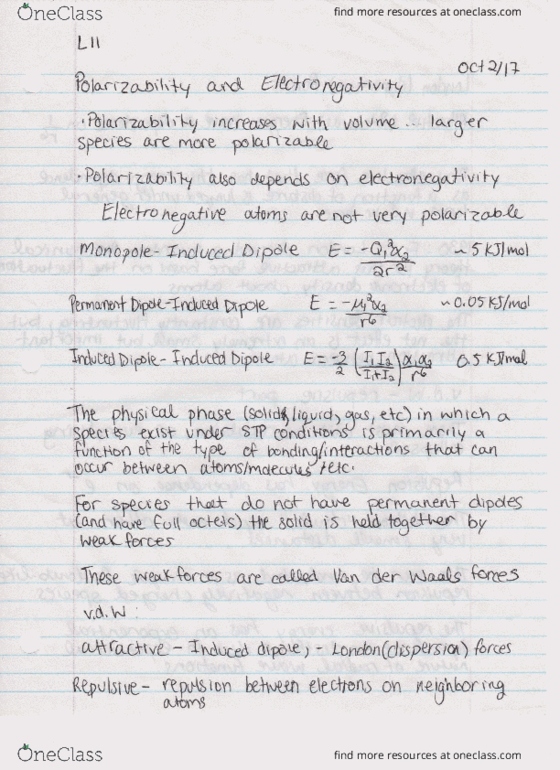 OneClass
find more resources at oneclass.com
L11
Oct 2/17
Polarizability and Electronegativity
• Polarizability increases with volume... larger
species are more polarizable
• Polarizability also depends on electronegativity
Electronegative atoms are not very polarizable
Monopole-Induced Dipole E = -Q₁²α₂ / 2r² ~ 5 KJ/mol
Permanent Dipole-Induced Dipole E = -μ₁²α₂ / r⁶ ~ 0.05 KJ/mol
Induced Dipole-Induced Dipole E = -3/2 (I₁I₂ / I₁+I₂) α₁α₂ / r⁶ 0.5 KJ/mol
The physical phase (solids, liquid, gas, etc) in which a
species exist under STP conditions is primarily a
function of the type of bonding/interactions that can
occur between atoms/molecules/etc.
For species that do not have permanent dipoles
(and have full octets) the solid is held together by
weak forces
These weak forces are called Van der Waals forces
v.d.W:
attractive - Induced dipole, - London(dispersion) forces
Repulsive - repulsion between electrons on neighboring
atoms
OneClass
find more resources at oneclass.com